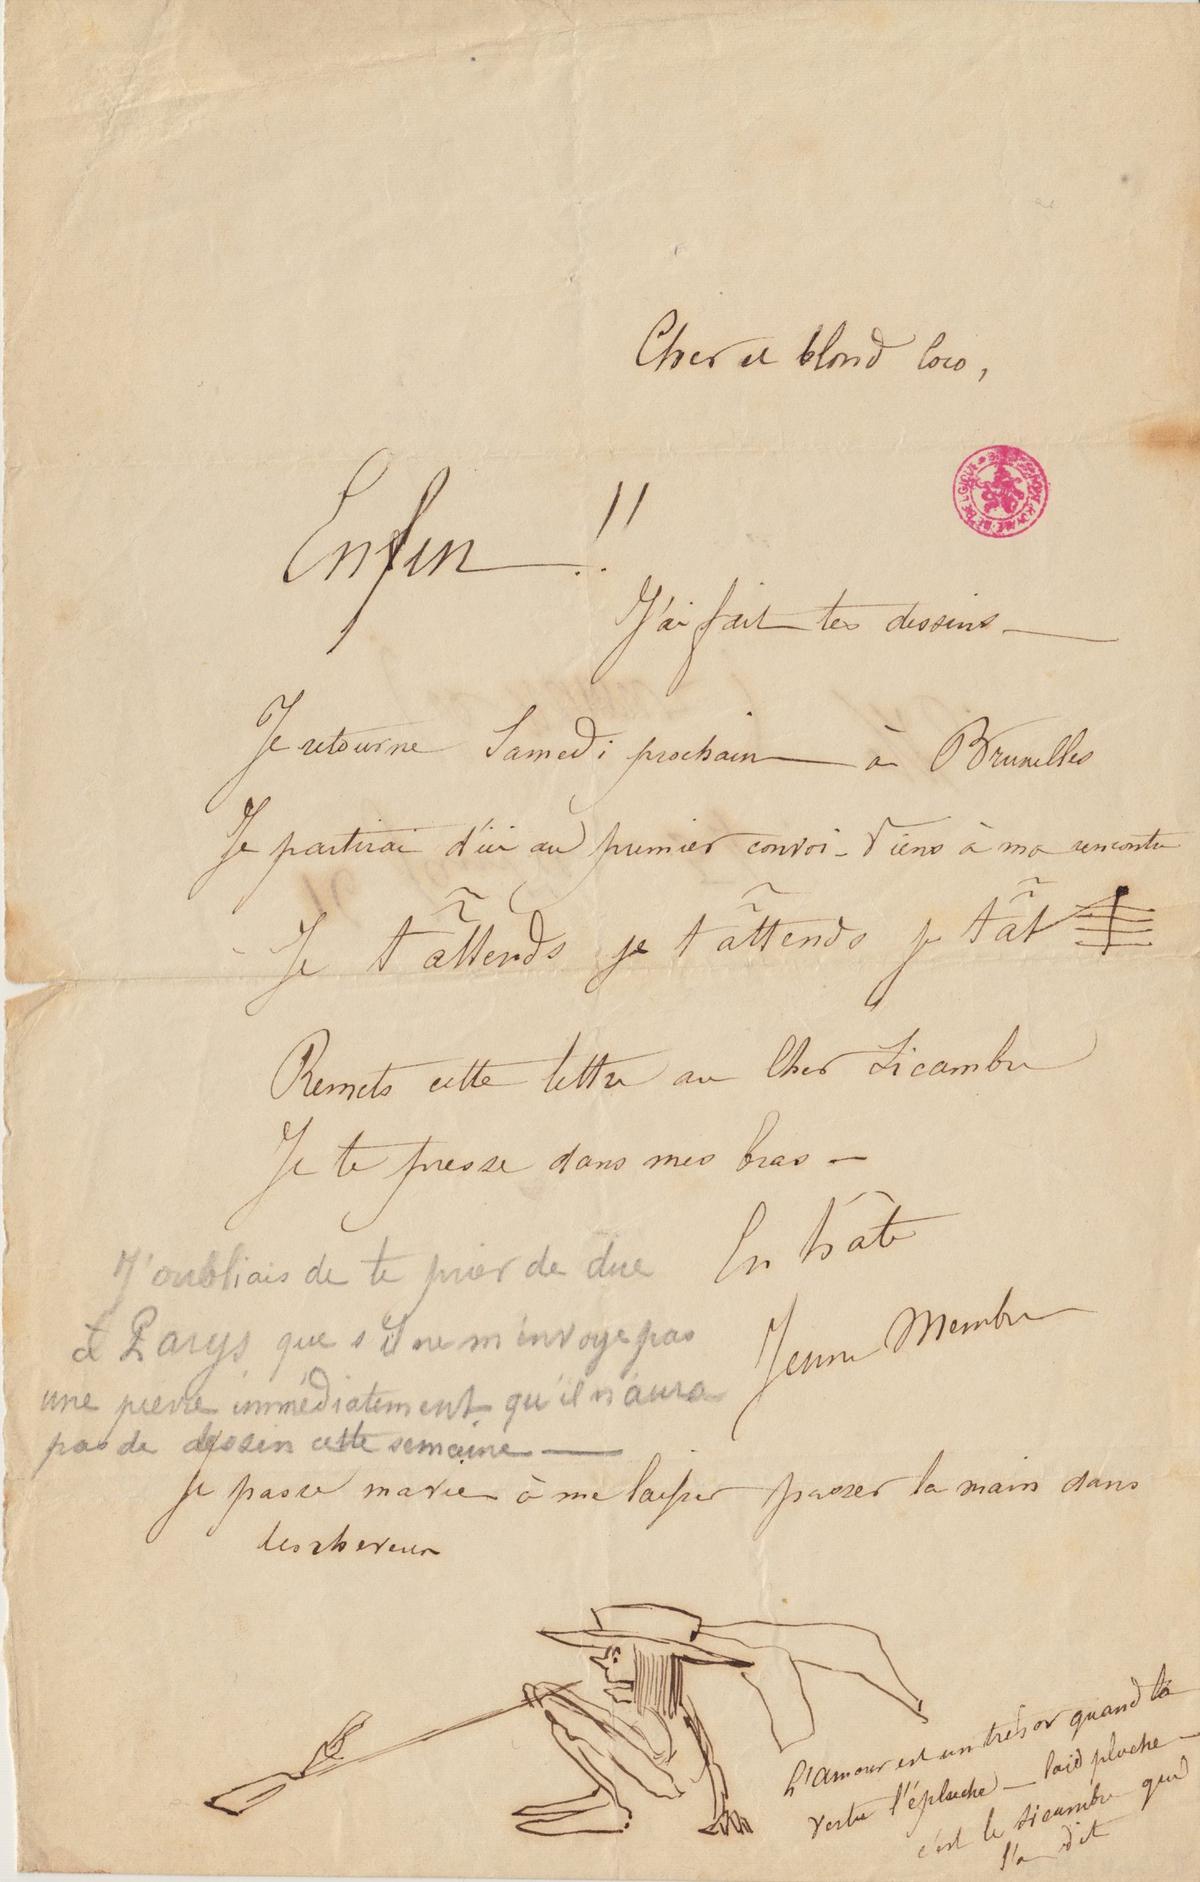 Cher et blond loco,
Enfin !!
J'ai fait tes dessins
Je retourne Samedi prochain à Bruxelles
Je partirai d'ici au premier convoi - Viens à ma rencontre
Je t'attends je t'attends je t'at
Remets cette lettre au Cher Sicambre
Je te presse dans mes bras -
En hâte
Jeune Membre
J'oubliais de te prier de dire
à Parys que s'il ne m'envoye pas
une pierre immédiatement qu'il n'aura
pas de dessin cette semaine
Je passe ma vie à me laisser passer la main dans
les cheveux
L'Amour est un trésor quand la
vertu l'épluche - laid pluche -
c'est le Sicambre qui
l'a dit